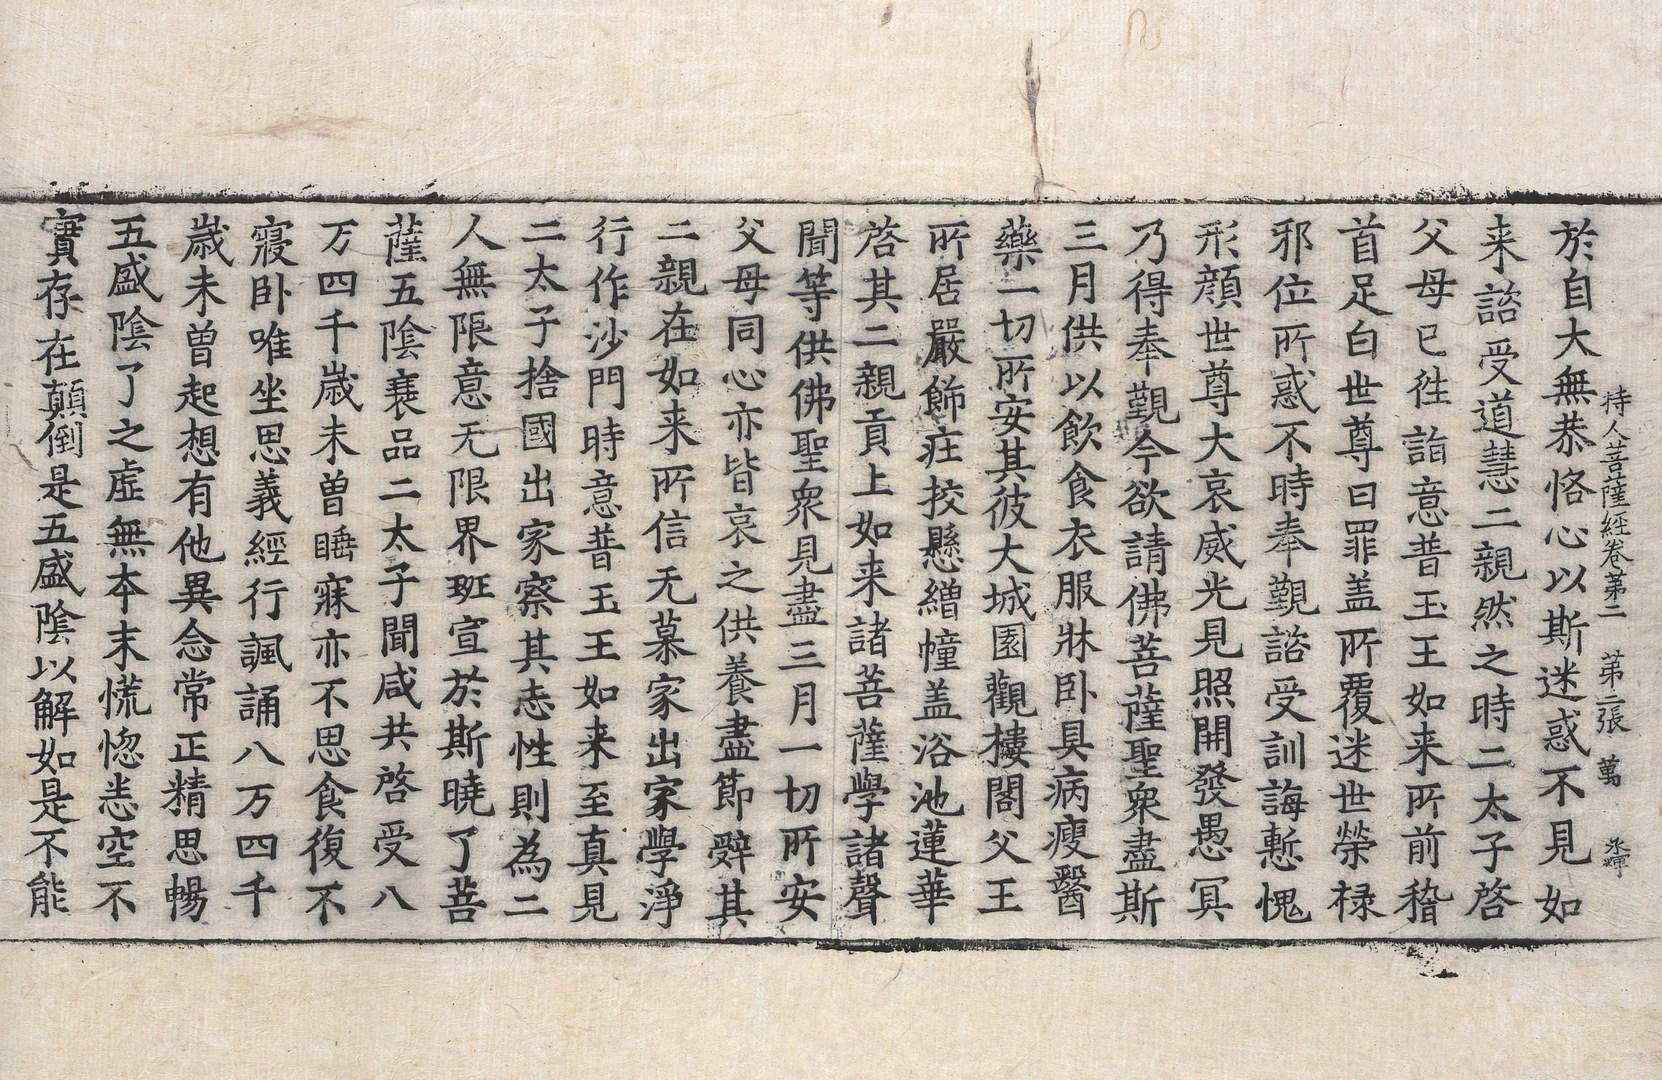 持人菩薩經卷第二 第二張 萬
於自大無恭恪心以斯迷惑不見如
来諮受道慧二親然之時二太子啓
父母已徃詣意普玉王如来所前稽
首足白世尊曰罪盖所覆迷世榮禄
邪位所惑不時奉覲諮受訓誨慙愧
形顔世尊大哀威光見照開發愚冥
乃得奉覲今欲請佛菩薩聖衆盡斯
三月供以飲食衣服牀卧具病瘦醫
藥一切所安其彼大城園觀樓閣父王
所居嚴飾莊挍懸繒幢盖浴池蓮華
啓其二親貢上如来諸菩薩學諸聲
聞等供佛聖衆見盡三月一切所安
父母同心亦皆哀之供養盡節辤其
二親在如来所信无慕家出家學淨
行作沙門時意普玉王如来至真見
二太子捨國出家察其志性則為二
人無限意无限界班宣於斯曉了菩
薩五陰衰品二太子聞咸共啓受八
万四千歲未曾睡寐亦不思食復不
寢卧唯坐思義經行諷誦八万四千
歲未曾起想有他異念常正精思暢
五盛陰了之虛無本末慌惚恙空不
實存在顛倒是五盛陰以解如是不能